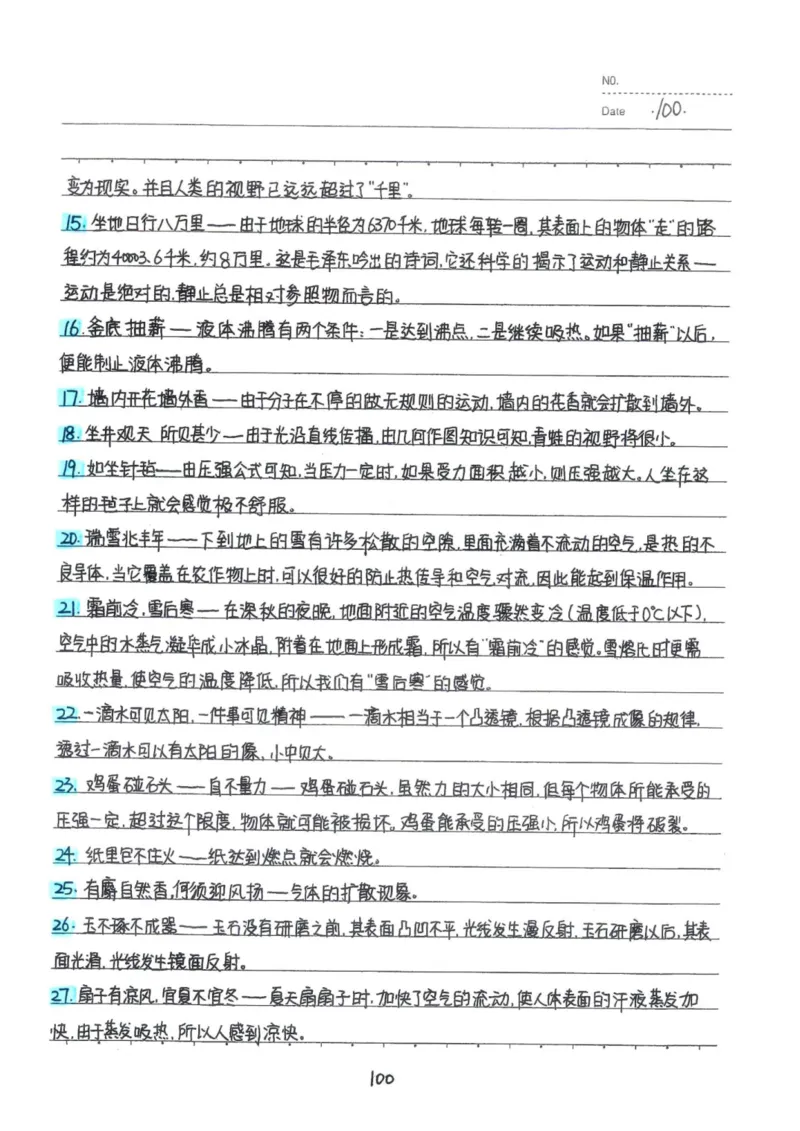 NO.
Date ·100·
变为现实。并且人类的视野已远远超过了"千里"。
15. 坐地日行八万里——由于地球的半径为6370千米,地球每转一圈,其表面上的物体"走"的路
程约为40003.6千米,约8万里。这是毛泽东吟出的诗词,它还科学的揭示了运动和静止关系——
运动是绝对的,静止总是相对参照物而言的。
16. 釜底抽薪——液体沸腾有两个条件:一是达到沸点,二是继续吸热。如果"抽薪"以后,
便能制止液体沸腾。
17. 墙内开花墙外香——由于分子在不停的做无规则的运动,墙内的花香就会扩散到墙外。
18. 坐井观天 所见甚少——由于光沿直线传播,由几何作图知识可知,青蛙的视野将很小。
19. 如坐针毡——由压强公式可知,当压力一定时,如果受力面积越小,则压强越大。人坐在这
样的毡子上就会感觉极不舒服。
20. 瑞雪兆丰年——下到地上的雪有许多松散的空隙,里面充满着不流动的空气,是热的不
良导体,当它覆盖在农作物上时,可以很好的防止热传导和空气对流,因此能起到保温作用。
21. 霜前冷,雪后寒——在深秋的夜晚,地面附近的空气温度骤然变冷(温度低于0℃以下),
空气中的水蒸气凝华成小冰晶,附着在地面上形成霜,所以有"霜前冷"的感觉。雪熔化时更需
吸收热量,使空气的温度降低,所以我们有"雪后寒"的感觉。
22. 一滴水可见太阳,一件事可见精神——一滴水相当于一个凸透镜,根据凸透镜成像的规律,
透过一滴水可以有太阳的像,小中见大。
23. 鸡蛋碰石头——自不量力——鸡蛋碰石头,虽然力的大小相同,但每个物体所能承受的
压强一定,超过这个限度,物体就可能被损坏。鸡蛋能承受的压强小,所以鸡蛋将破裂。
24. 纸里包不住火——纸达到燃点就会燃烧。
25. 有麝自然香,何须迎风扬——气体的扩散现象。
26. 玉不琢不成器——玉石没有研磨之前,其表面凸凹不平,光线发生漫反射,玉石研磨以后,其表
面光滑,光线发生镜面反射。
27. 扇子有凉风,宜夏不宜冬——夏天扇扇子时,加快了空气的流动,使人体表面的汗液蒸发加
快,由于蒸发吸热,所以人感到凉快。
100